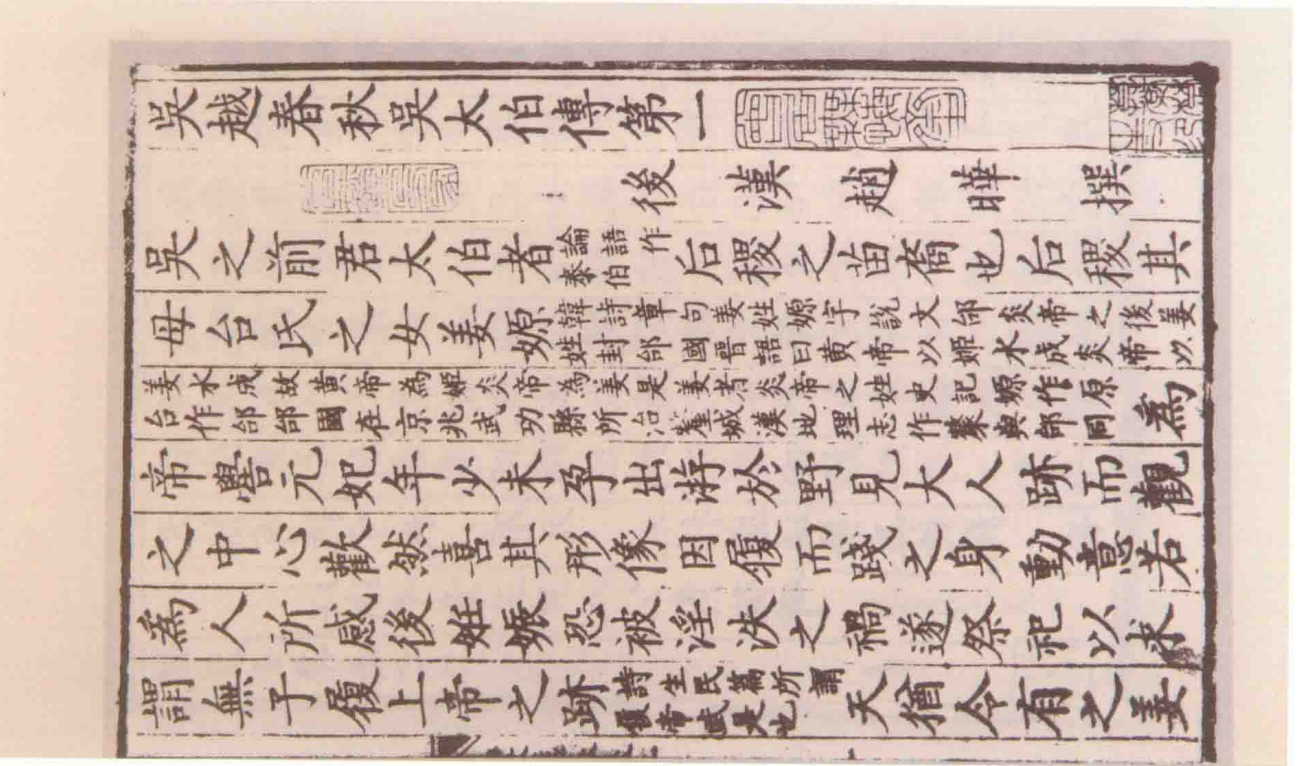 吳越春秋吳太伯傳第一
後漢趙曄撰
吳之前君太伯者論語作泰伯后稷之苗裔也后稷其
母台氏之女姜嫄韓詩章句姜姓嫄字說文邰炎帝之後姜姓封邰國晉語曰黃帝以姬水成炎帝以
姜水成故黃帝為姬炎帝為姜是姜者炎帝之姓史記嫄作原台作邰邰國在京兆武功縣所治釐城漢地理志作斄與邰同為
帝嚳元妃年少未孕出游於野見大人跡而觀
之中心歡然喜其形像因履而踐之身動意若
為人所感後姙娠恐被淫泆之禍遂祭祀以求
謂無子履上帝之跡詩生民篇所謂履帝武是也天猶令有之姜